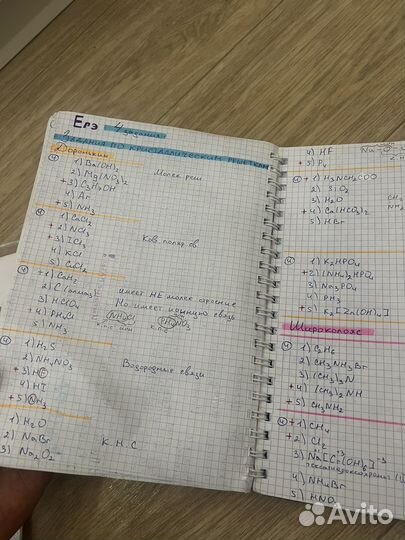 Егэ 4 задания
Задания по кристаллическим решеткам
Доронькин
④ 1) Ba(OH)₂
2) Mg(NO₃)₂
+3) C₃H₇OH
4) Ar
+5) NH₃
Молек реш
④ 1) CaCl₂
+2) NCl₃
+3) ICl₃
4) KCl
5) CuCl₂
Ков. поляр св
④ +1) CaH₂
2) C (алмаз)
3) HClO₄
+4) PH₄Cl
5) NH₃
имеет НЕ молек строение
Но имеет ионную связь
④ 1) H₂S
2) NH₄NO₃
+3) HF
4) HI
+5) NH₃
Водородные связи
④ 1) H₂O
2) NaBr
3) Na₂O₂
К.Н.С
4) HF
+5) P₄
④ +1) H₃NCH₂COO
2) SiO₂
3) H₂O
+4) Ca(HCO₃)₂
5) HBr
④ 1) K₂HPO₄
+2) (NH₄)₂HPO₄
3) Na₃PO₄
4) PH₃
+5) K₂[Zn(OH)₄]
Широкопояс
④ 1) C₂H₆
2) CH₃NH₃Br
3) (CH₃)₃N
+4) (CH₃)₂NH
+5) CH₃NH₂
④ +1) CH₄
+2) Cl₂
3) Na₃[Cr(OH)₆]
4) NH₄Br
5) HNO₃
Avito